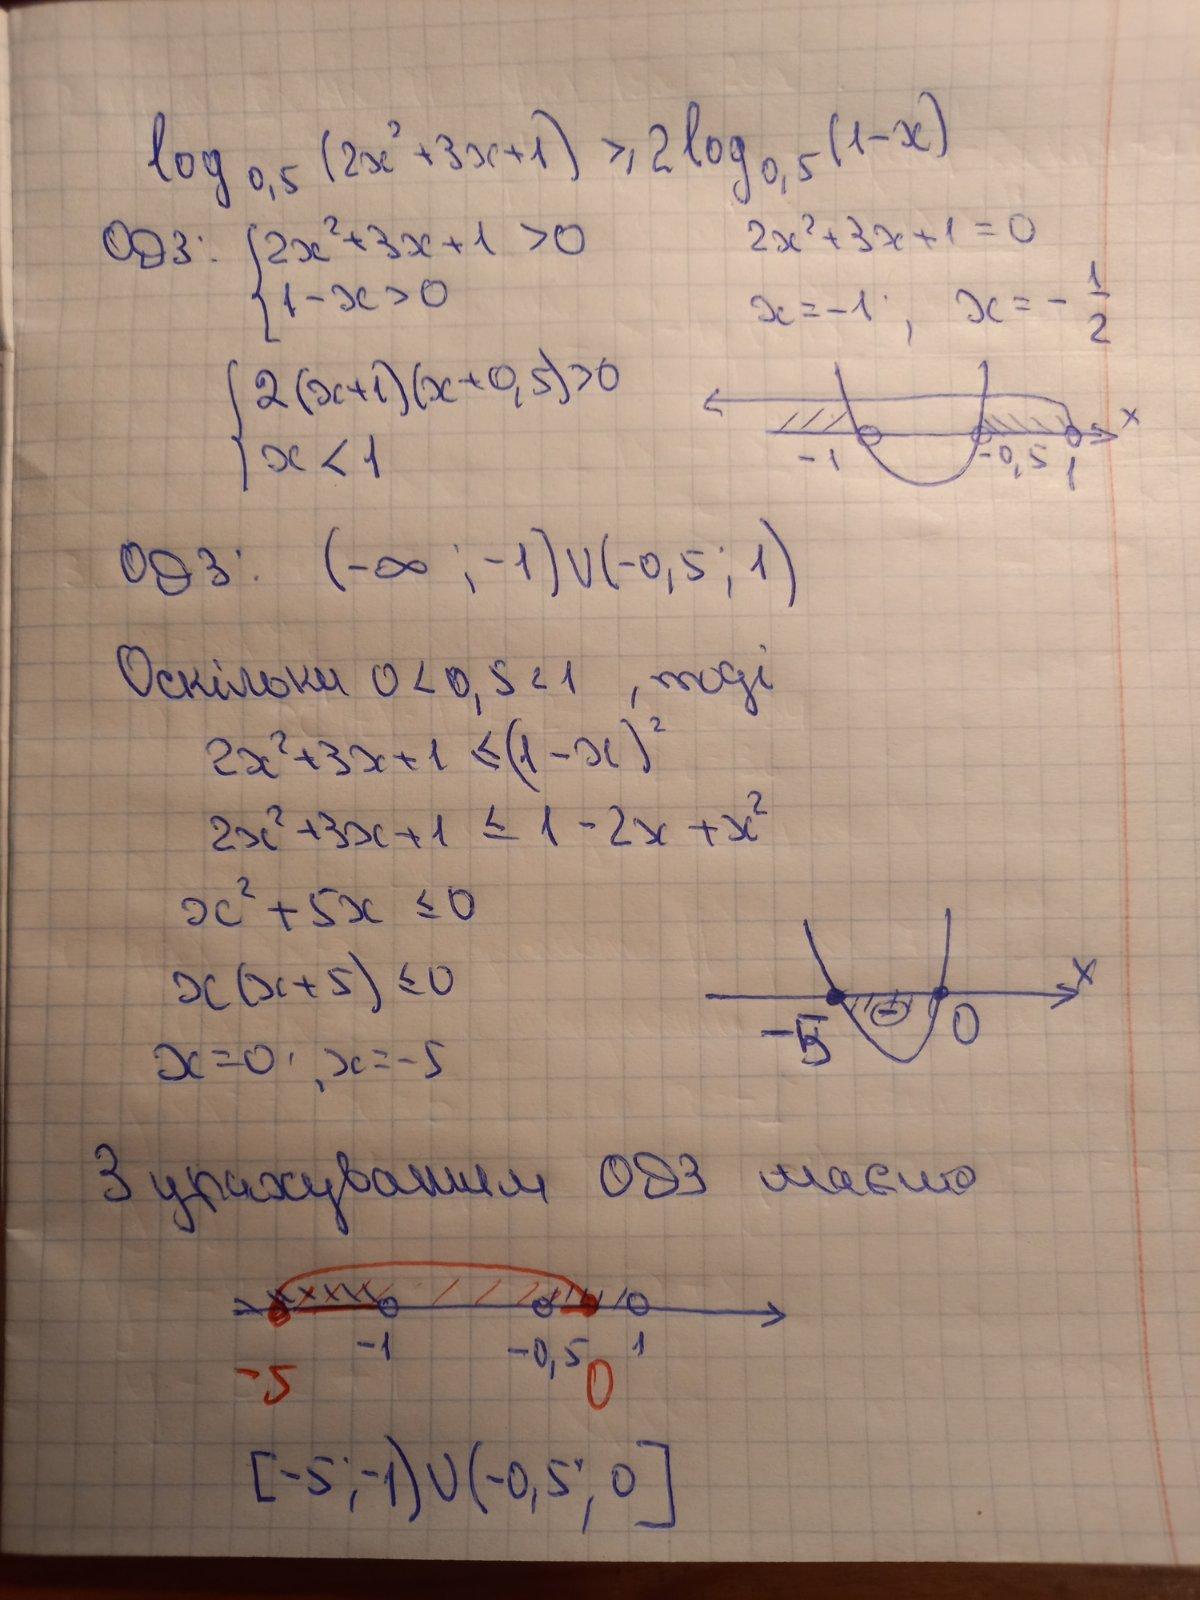 log 0,5 (2x²+3x+1) ⩾ 2 log 0,5 (1-x)
ОДЗ: { 2x²+3x+1 >0
1-x>0
2x²+3x+1=0
x=-1; x=-1/2
{ 2(x+1)(x+0,5)>0
x<1
-1 -0,5 1 x
ОДЗ: (-∞; -1)∪(-0,5; 1)
Оскільки 0<0,5<1, тоді
2x²+3x+1 ≤(1-x)²
2x²+3x+1 ≤ 1-2x+x²
x²+5x ≤0
x(x+5) ≤0
x=0; x=-5
-5 - 0 x
З урахуванням ОДЗ маємо
-1 -0,5 1
-5 0
[-5;-1)∪(-0,5; 0]